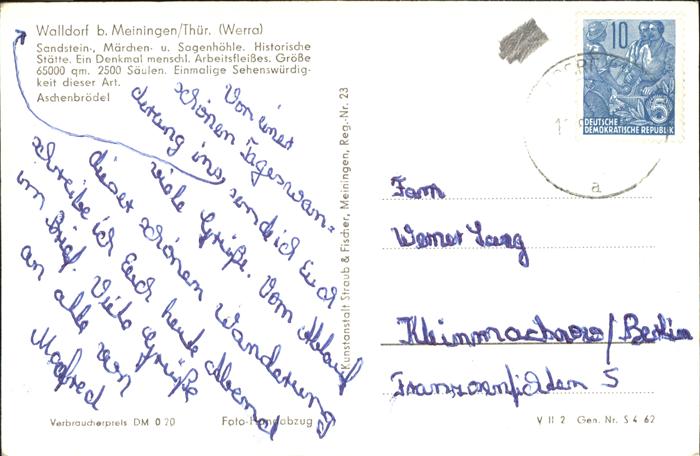 Walldorf b. Meiningen/Thür. (Werra)
Sandstein-, Märchen- u. Sagenhöhle. Historische
Stätte. Ein Denkmal menschl. Arbeitsfleißes. Größe
65000 qm. 2500 Säulen. Einmalige Sehenswürdig-
keit dieser Art.
Aschenbrödel
Von einer
schönen Tageswan=
derung ins, sende ich Euch
viele Grüße. Vom Ablauf
dieser schönen Wanderung
schreibe ich Euch heute Abend
im Brief. Viele Grüße
an alle von
Manfred
Verbraucherpreis DM 0 20
Foto-Handabzug
Kunstanstalt Straub & Fischer, Meiningen, Reg.-Nr. 23
10
DEUTSCHE
DEMOKRATISCHE REPUBLIK
5
a
Fam
Werner Lang
Kleinmachnow/Berlin
5
V 11 2 Gen. Nr. S 4 62